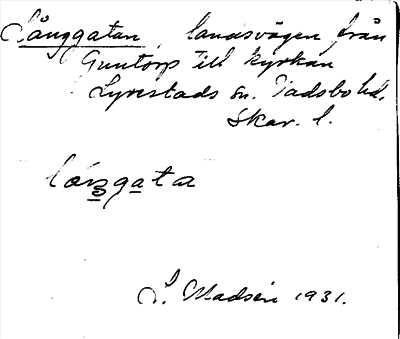 Långgatan, landsvägen från
Guntorp till kyrkan
Lyrestads sn. Vadsbo hd.
Skar. l.
S. Madsén 1931.